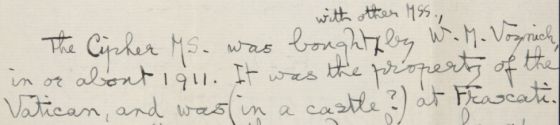 with other MSS.,
The Cipher MS. was bought by W. M. Voynich,
in or about 1911. It was the property of the
Vatican, and was (in a castle?) at Frascati.